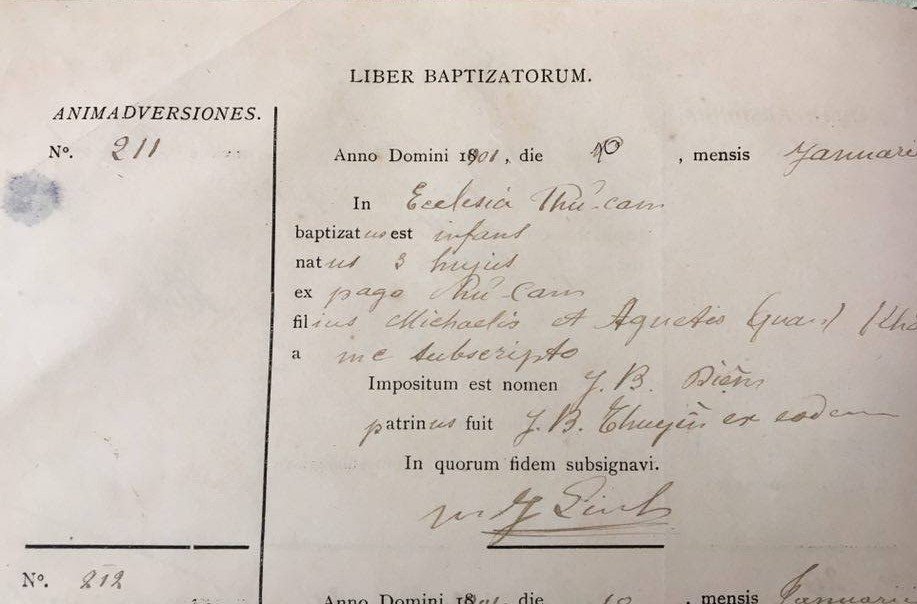 LIBER BAPTIZATORUM.
ANIMADVERSIONES.
Nº. 211
Anno Domini 1901, die 10, mensis Januarii
In Ecclesia Thủ-cam
baptizatus est infans
natus 3 hujus
ex pago Phủ-Cam
filius Michaelis et Agnetis
a me subscripto
Impositum est nomen J. B.
patrinus fuit J. B. ex eodem
In quorum fidem subsignavi.
Nº. 212
Anno Domini 1901, die 10, mensis Januarii